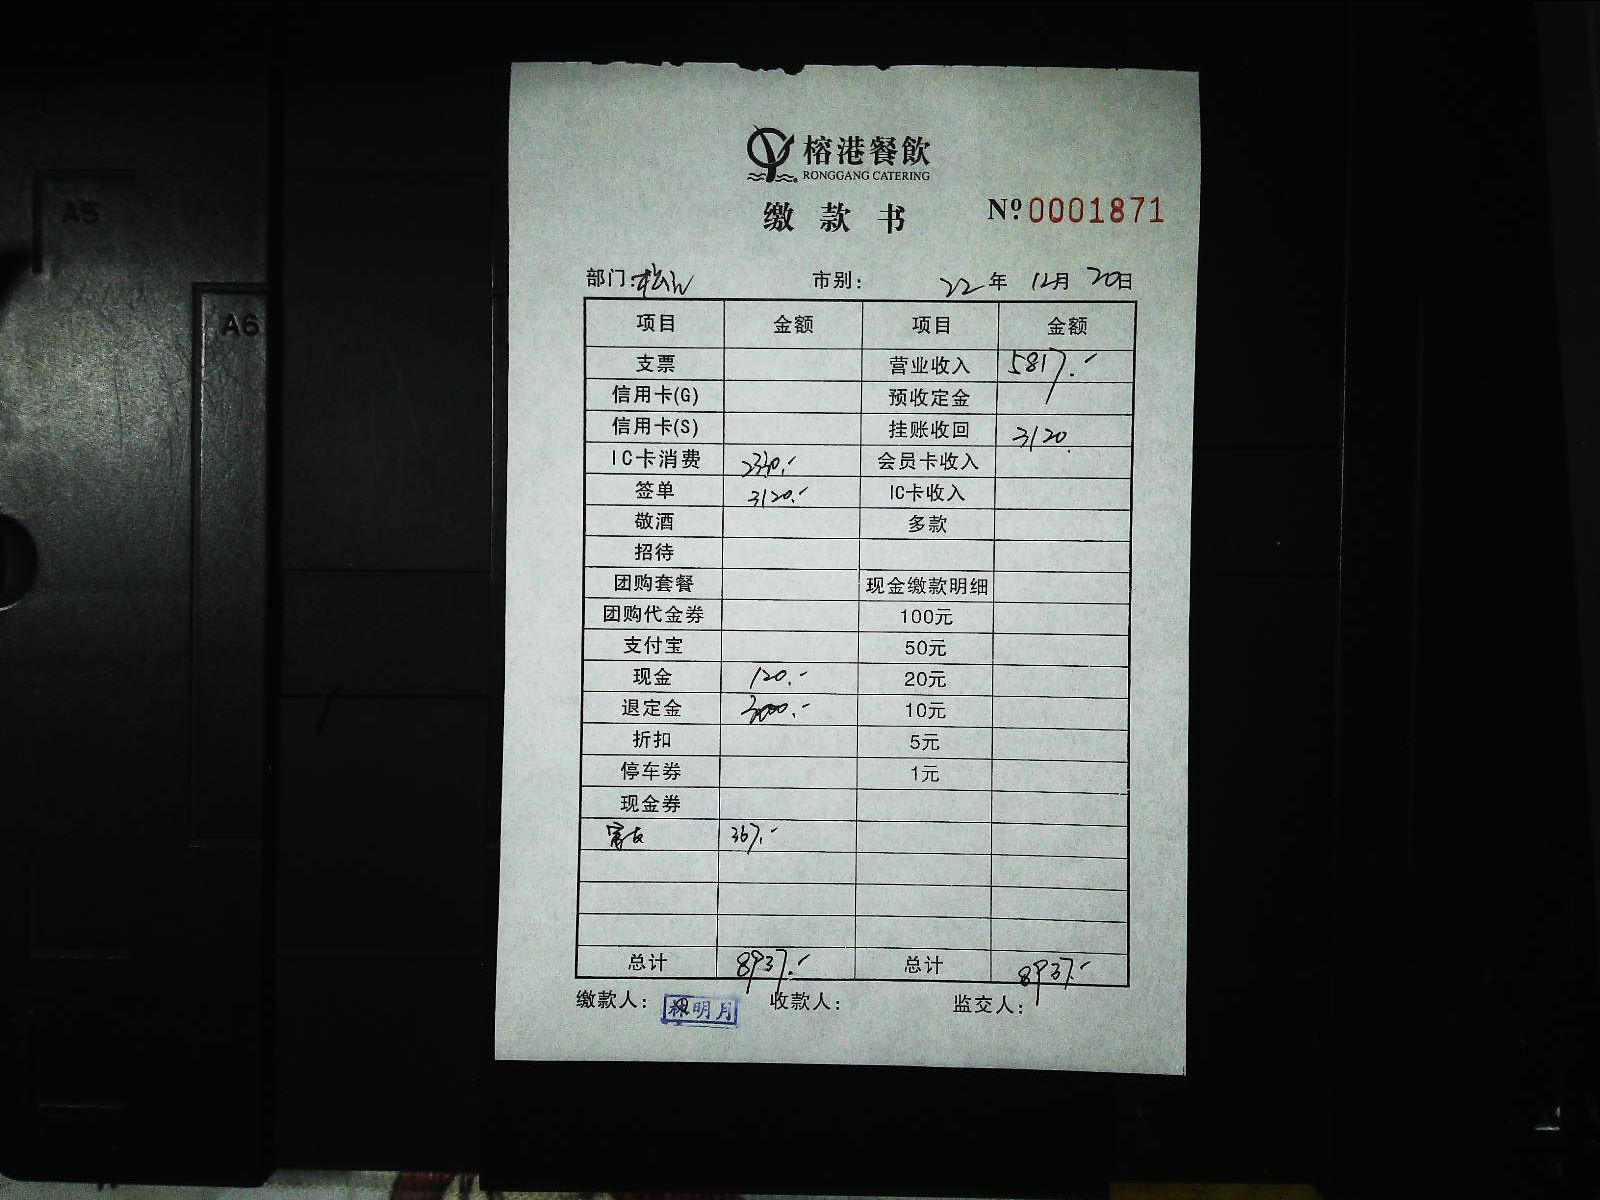 A5
A6
榕港餐飲
RONGGANG CATERING
缴款书
Nº 0001871
部门: 市别: 22年 12月 20日
项目 金额 项目 金额
支票 营业收入 5817.-
信用卡(G) 预收定金
信用卡(S) 挂账收回 3120.
IC卡消费 2330.- 会员卡收入
签单 3120.- IC卡收入
敬酒 多款
招待
团购套餐 现金缴款明细
团购代金券 100元
支付宝 50元
现金 120.- 20元
退定金 3000.- 10元
折扣 5元
停车券 1元
现金券
367.-
总计 8937.- 总计 8937.-
缴款人: 林明月 收款人: 监交人: